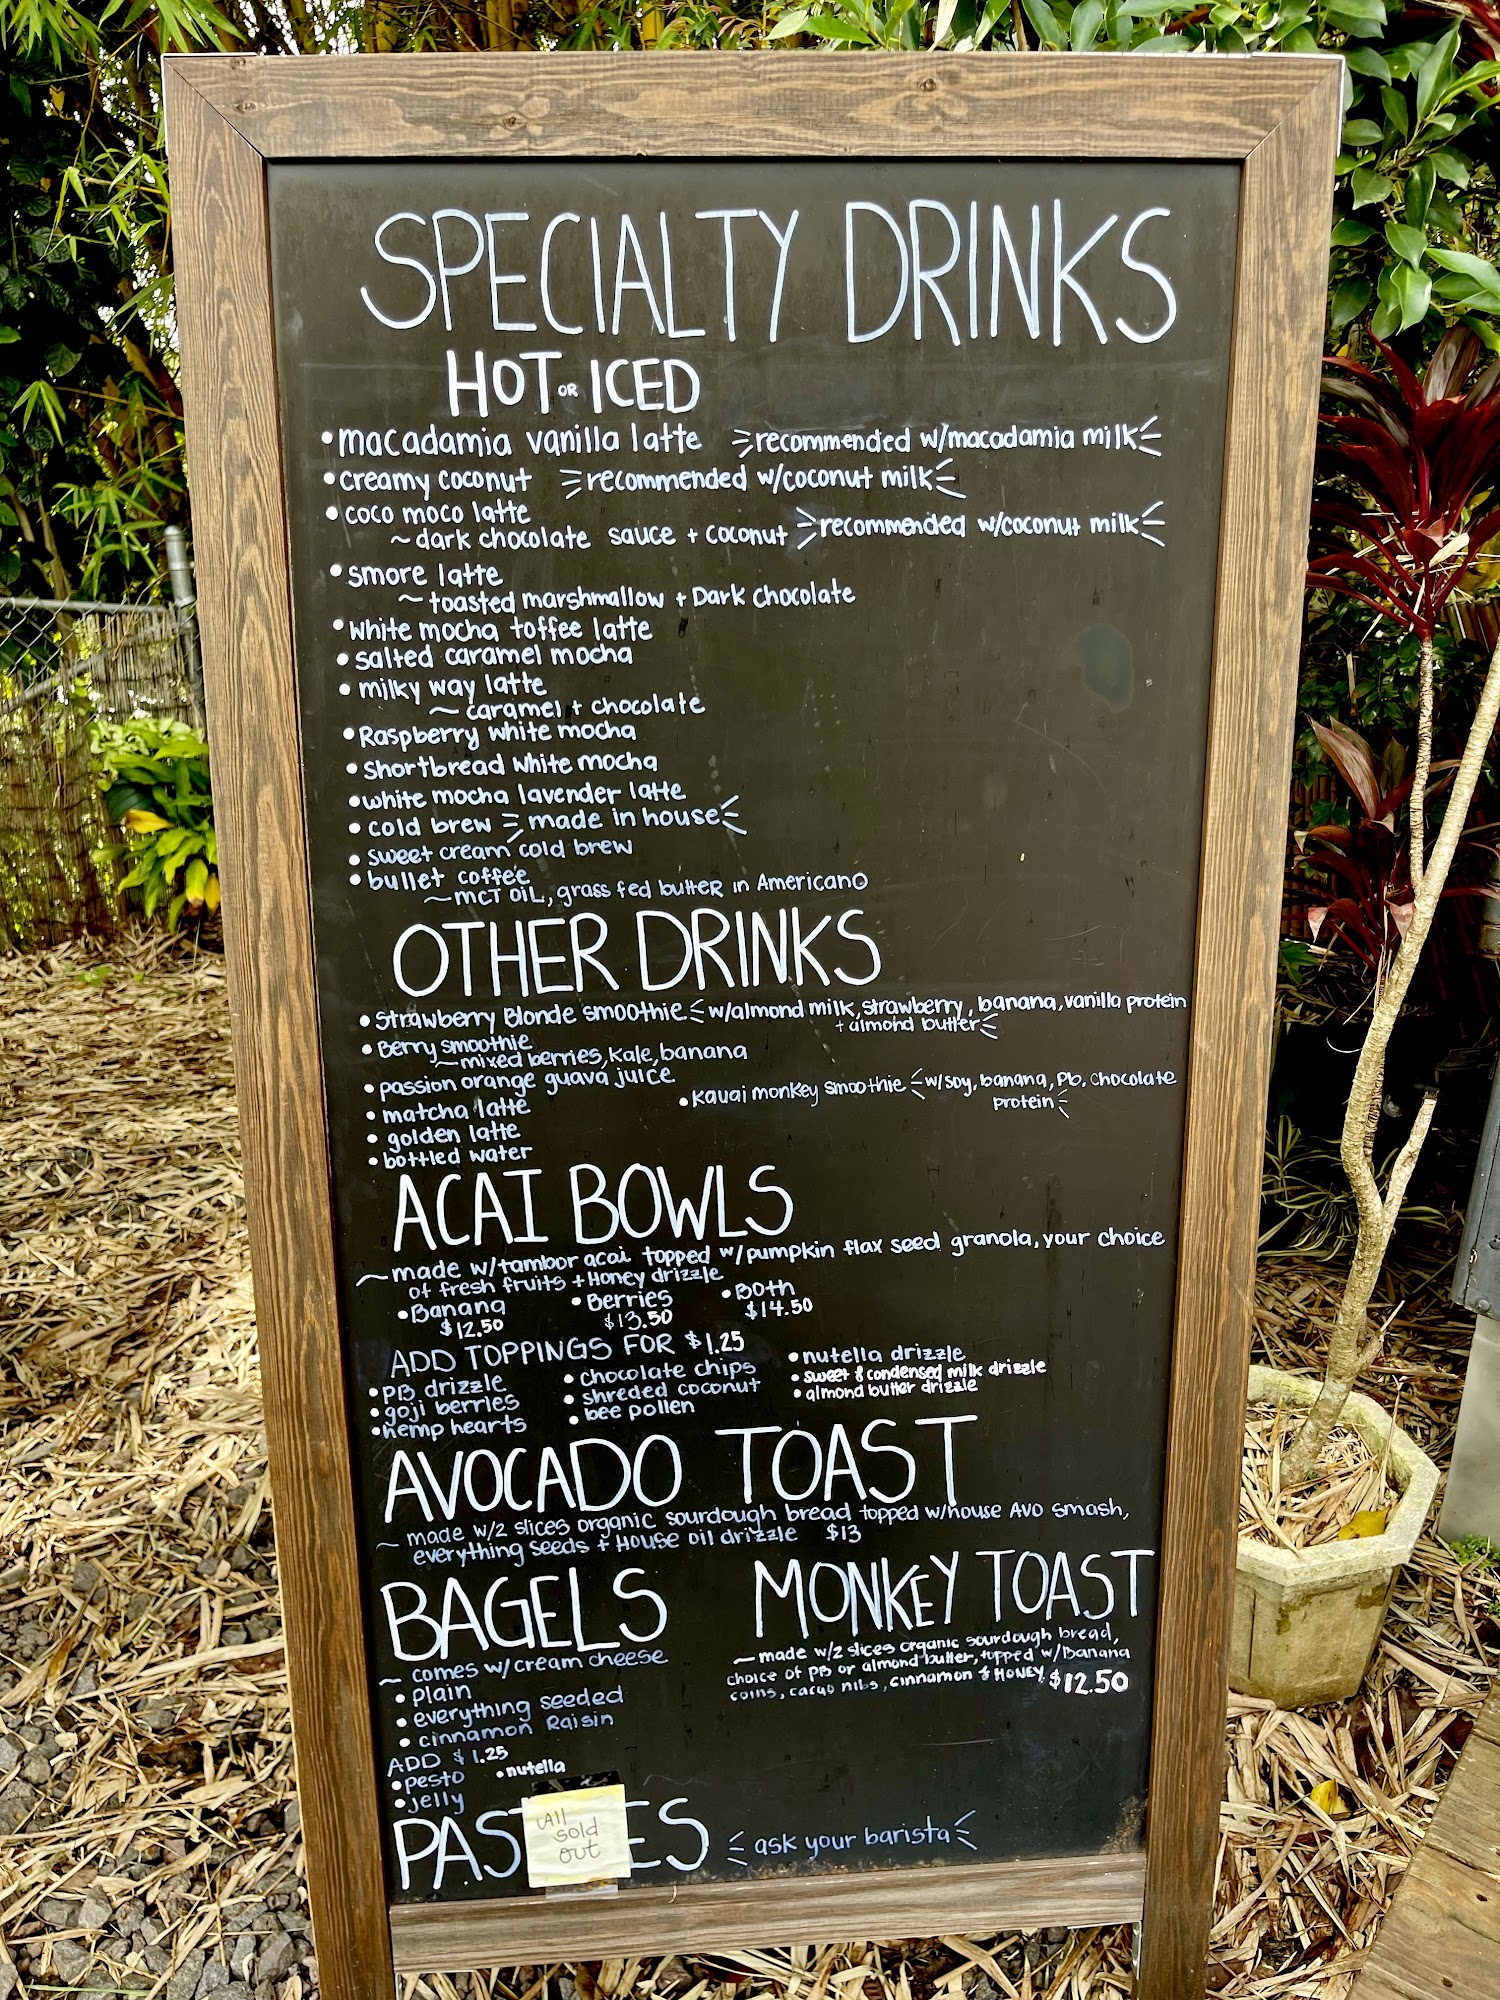 SPECIALTY DRINKS
HOT OR ICED
• macadamia vanilla latte recommended w/macadamia milk
• creamy coconut recommended w/coconut milk
• coco moco latte
~ dark chocolate sauce + coconut recommended w/coconut milk
• smore latte
~ toasted marshmallow + Dark chocolate
• white mocha toffee latte
• salted caramel mocha
• milky way latte
~ caramel + chocolate
• Raspberry white mocha
• shortbread white mocha
• white mocha lavender latte
• cold brew made in house
• sweet cream cold brew
• bullet coffee
~ MCT OIL, grass fed butteR in AmericanO
OTHER DRINKS
• Strawberry Blonde smoothie w/almond milk, strawberry, banana, vanilla protein
+ almond butter
• Berry smoothie
~ mixed berries, kale, banana
• passion orange guava juice
• Kauai monkey smoothie w/soy, banana, pb, chocolate
protein
• matcha latte
• golden latte
• bottled water
ACAI BOWLS
~ made w/tambor acai topped w/pumpkin flax seed granola, your choice
of fresh fruits + Honey drizzle
• Banana • Berries • BOth
$12.50 $13.50 $14.50
ADD TOPPINGS FOR $1.25
• PB drizzle • chocolate chips • nutella drizzle
• goji berries • shreded coconut • sweet & condensed milk drizzle
• hemp hearts • bee pollen • almond butter drizzle
AVOCADO TOAST
~ made w/2 slices organic sourdough bread topped w/house AVO smash,
everything seeds + House oil drizzle $13
BAGELS
~ comes w/cream cheese
• plain
• everything seeded
• cinnamon Raisin
ADD $1.25
• pesto • nutella
• jelly
MONKEY TOAST
~ made w/2 slices organic sourdough bread,
choice of PB or almond butter, topped w/Banana
coins, cacao nibs, cinnamon & HONEY $12.50
PAS ES ask your barista
All
sold
out